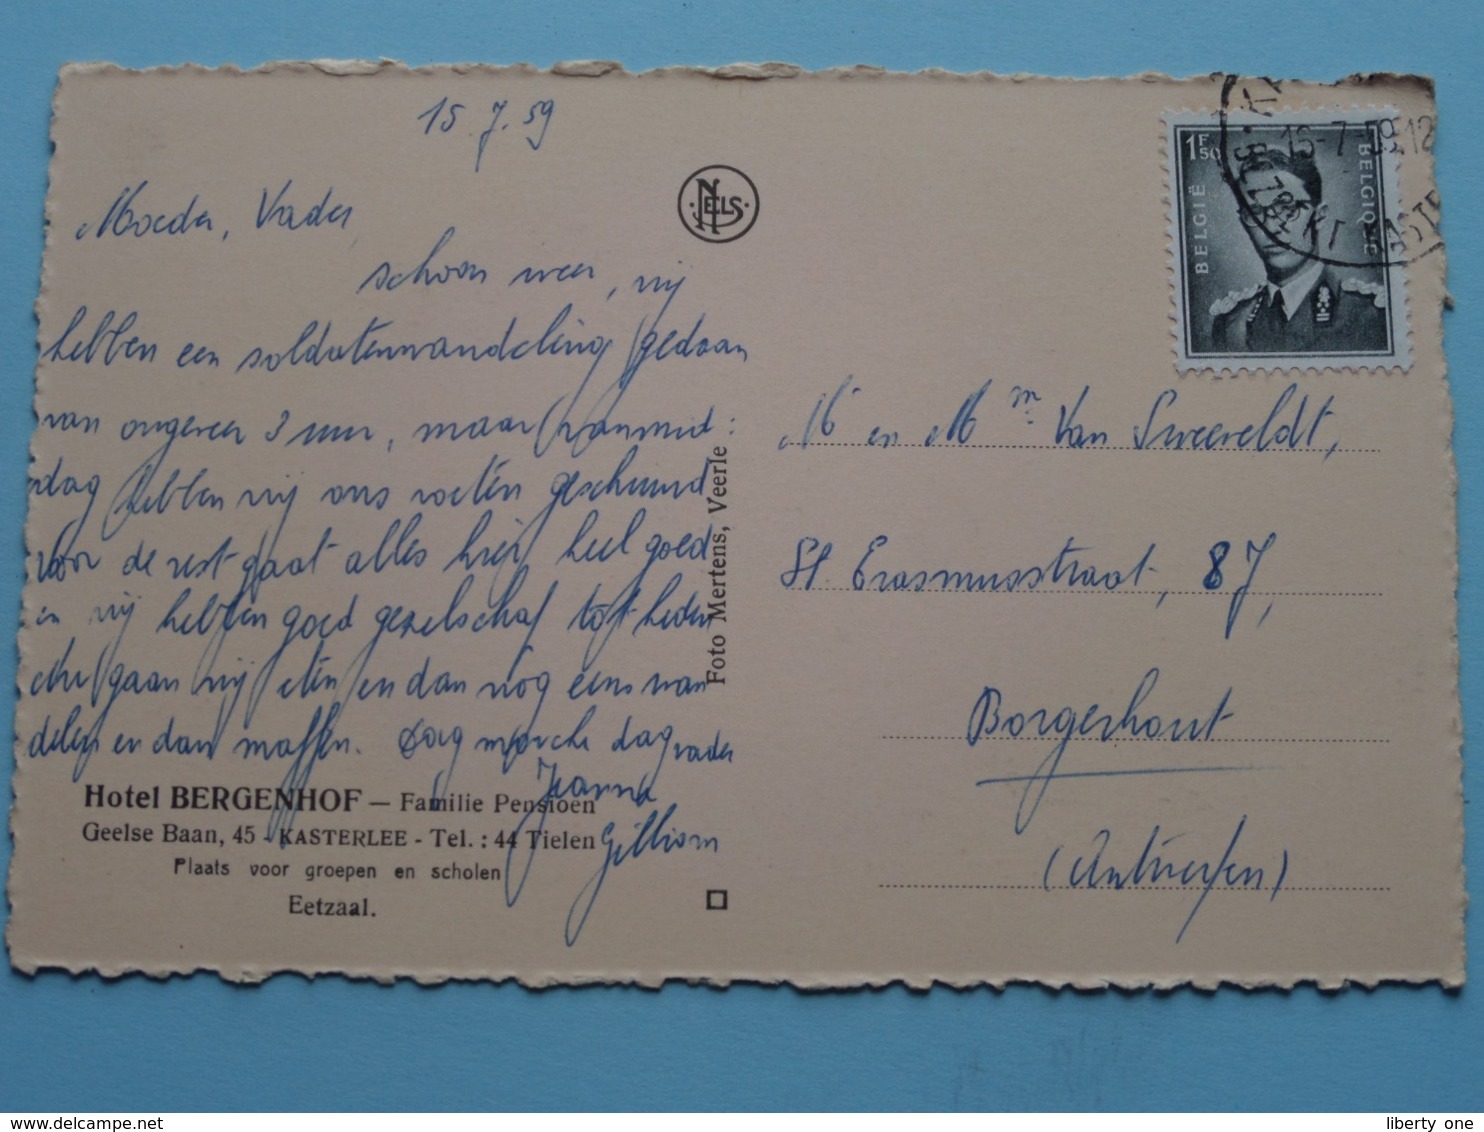 15.7.59
Moeder, Vader,
schoon weer, wij
hebben een soldatenwandeling gedaan
van ongeveer 3 uur, maar vanmid:
dag hebben wij ons voeten geschuurd
voor de rest gaat alles hier heel goed
en wij hebben goed gezelschaf tot heden
gaan wij eten en dan nog eens wan
delen en dan maffen. Dag moeche dag vader
Jeanne
Gilliom
NELS
Foto Mertens, Veerle
Hotel BERGENHOF — Familie Pensioen
Geelse Baan, 45 - KASTERLEE - Tel. : 44 Tielen
Plaats voor groepen en scholen
Eetzaal.
1F50
BELGIË
BELGIQUE
16-7-59.12
Mr en Mm Van Sweeveldt,
St. Erasmusstraat, 87,
Borgerhout
(Antwerpen)
liberty one
www.delcampe.net